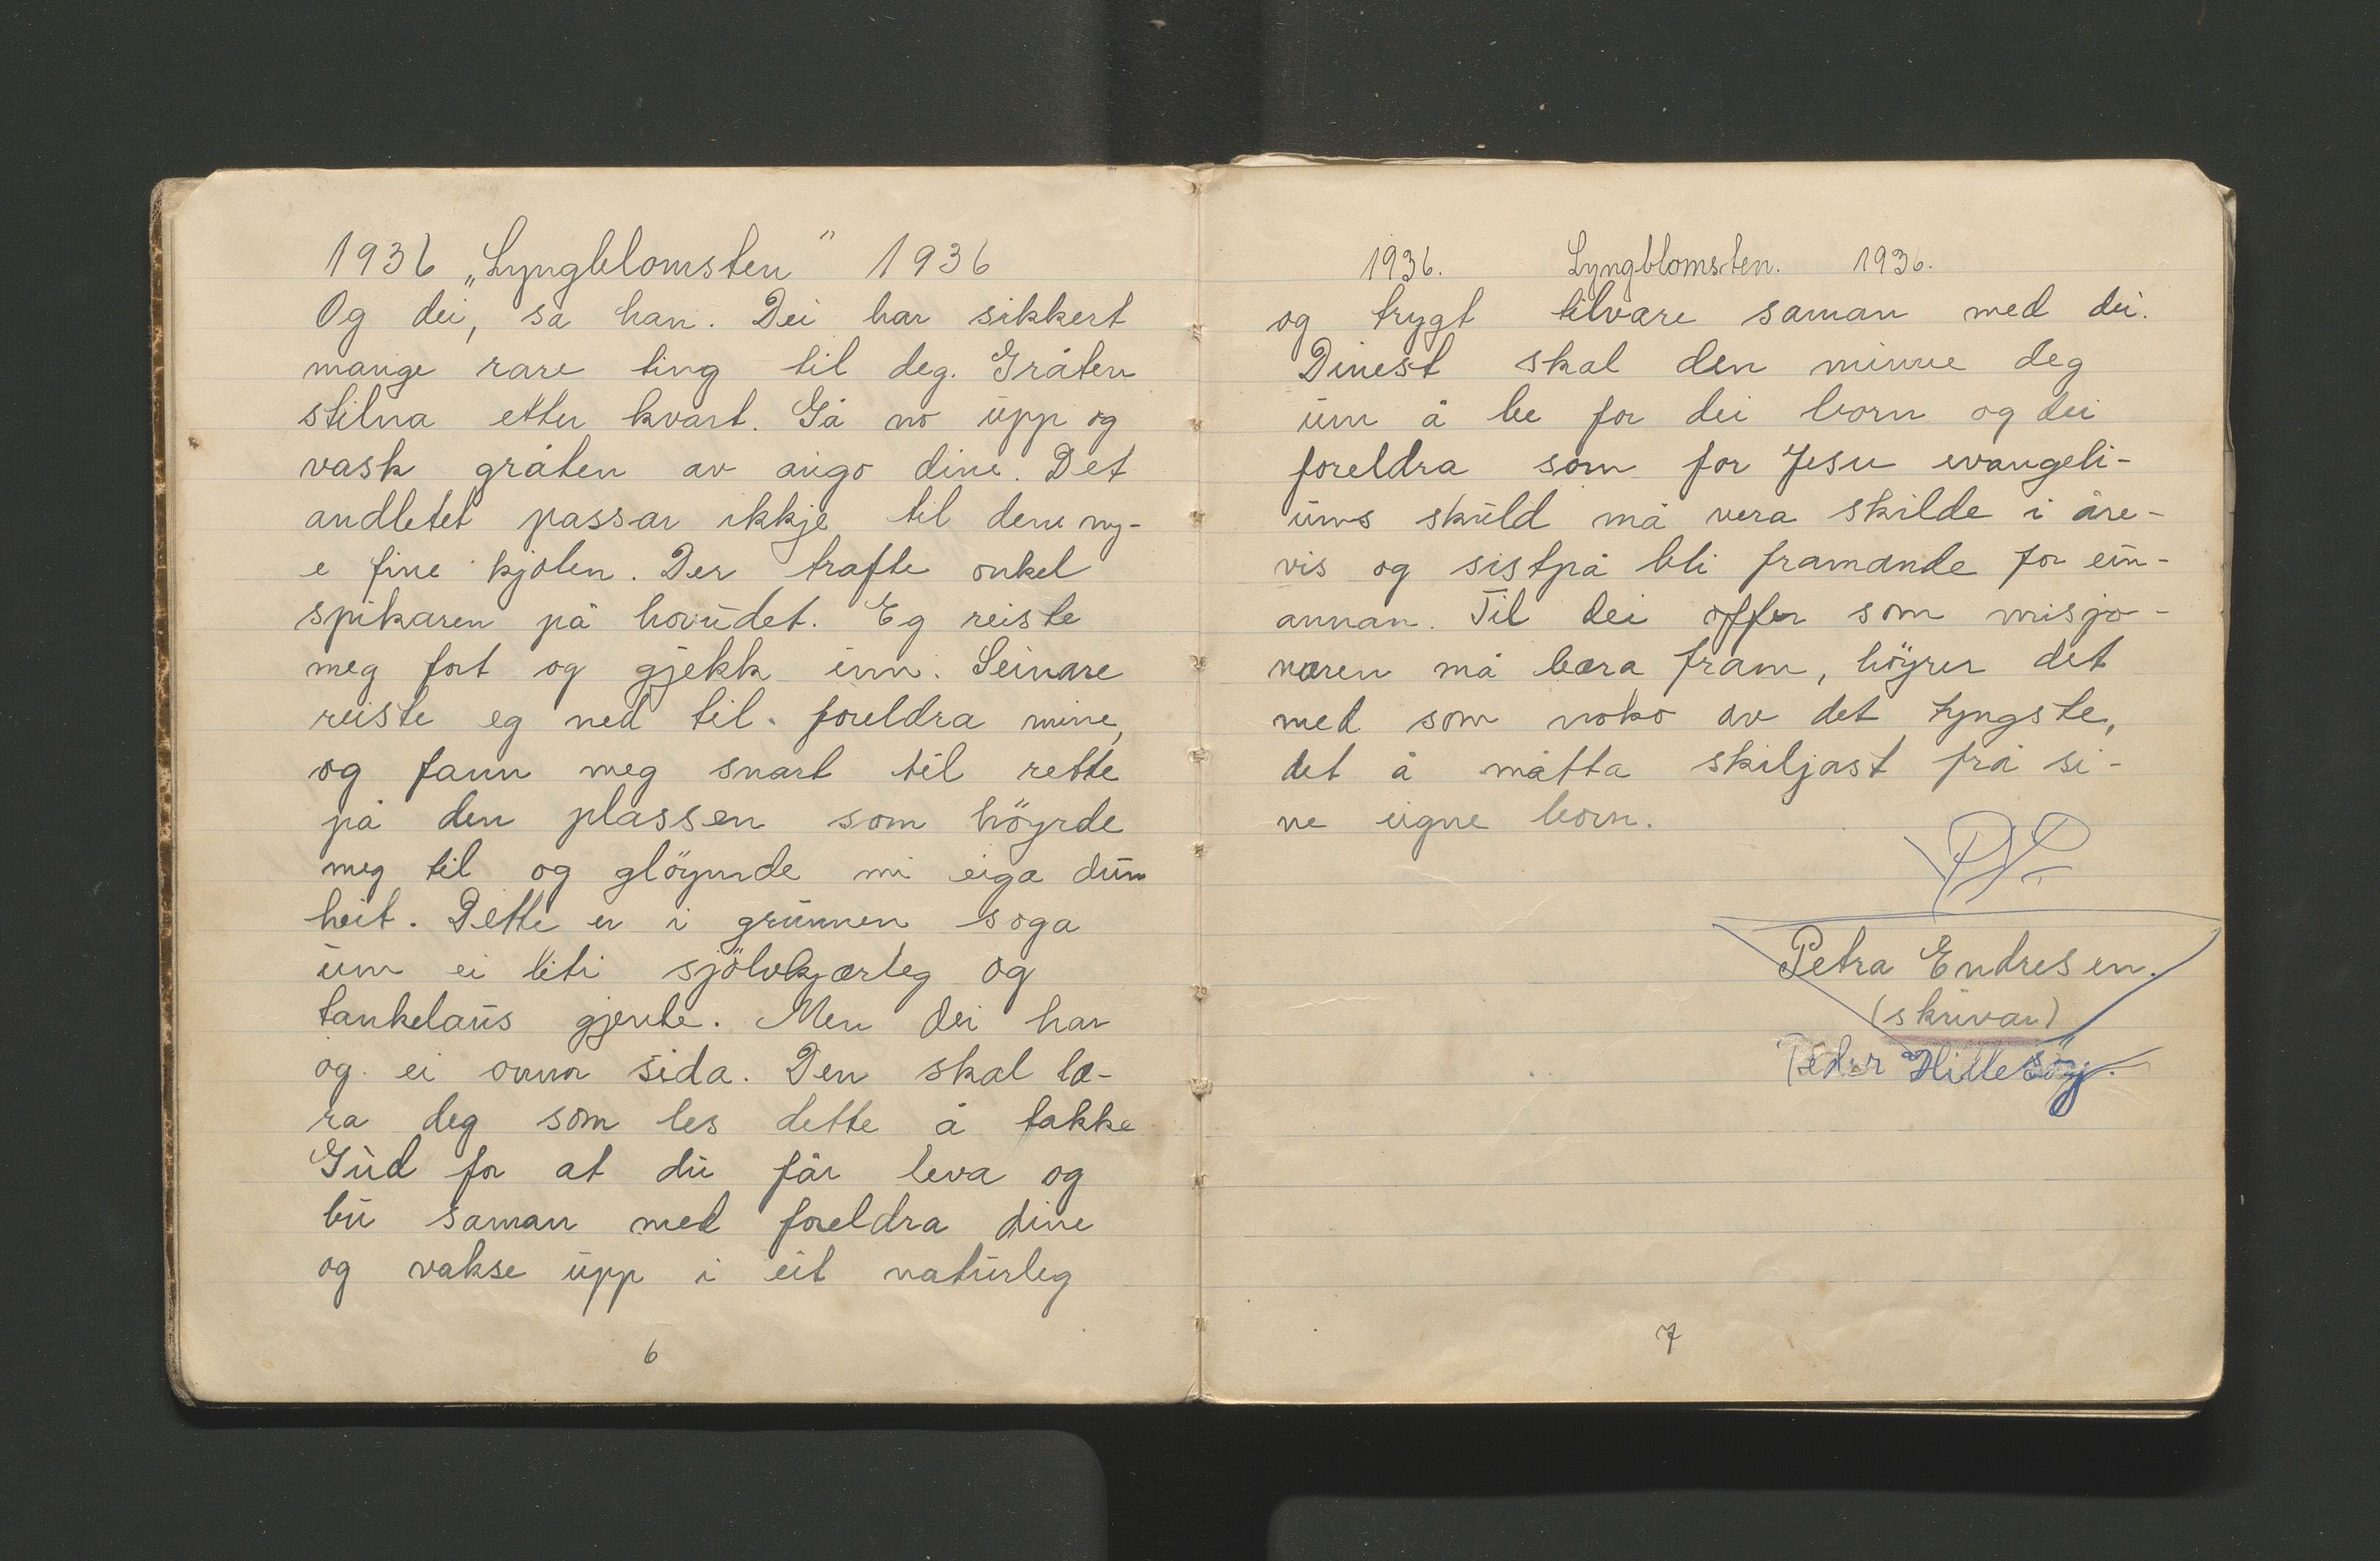 1936 „Lyngblomsten" 1936
Og dei, sa han. Dei har sikkert
mange rare ting til deg. Gråten
stilna etter kvart. Gå no upp og
vask gråten av augo dine. Det
andletet passar ikkje til den ny-
e fine kjolen. Der trafte onkel
spikaren på hovudet. Eg reiste
meg fort og gjekk inn. Seinare
reiste eg ned til foreldra mine,
og fann meg snart til rette
på den plassen som höyrde
meg til og glöymde mi eiga dum
heit. Dette er i grunnen soga
um ei liti sjölvkjærleg og
tankelaus gjente. Men dei har
og ei onnor sida. Den skal læ-
ra deg som les dette å takke
Gud for at du får leva og
bu saman med foreldra dine
og vakse upp i eit naturleg
6
1936. Lyngblomsten. 1936.
og trygt tilvære saman med dei.
Dinest skal den minne deg
um å be for dei born og dei
foreldra som for Jesu evangeli-
ums skuld må vera skilde i åre-
vis og sistpå bli framande for ein-
annan. Til dei offer som misjo-
næren må bæra fram, höyrer det
med som noko av det tyngste,
det å måtta skiljast frå si-
ne eigne born.
Petra Endresen.
(skrivar)
Peder Hillesöy.
7